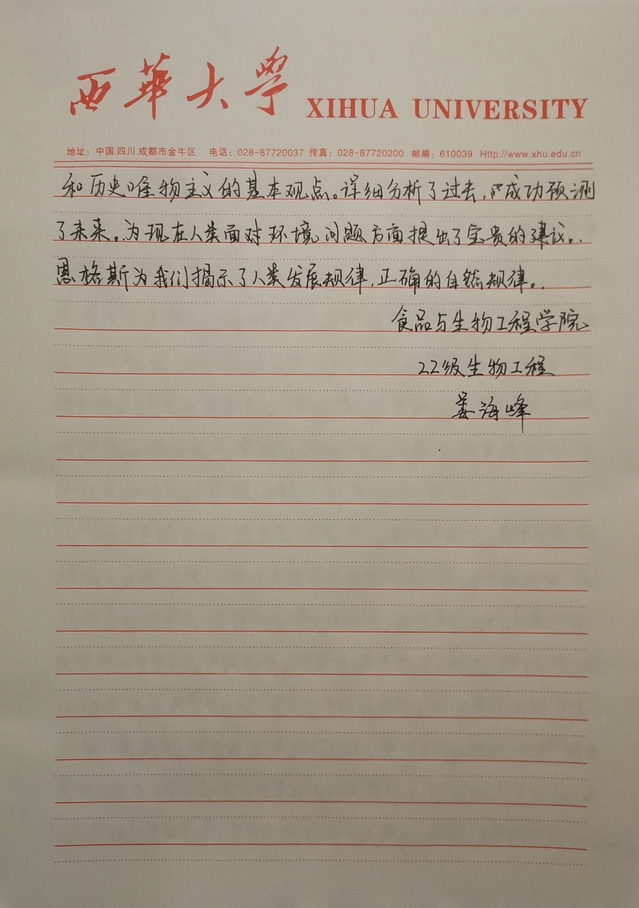 西华大学 XIHUA UNIVERSITY
地址：中国.四川.成都市金牛区 电话：028-87720037 传真：028-87720200 邮编：610039 Http://www.xhu.edu.cn
和历史唯物主义的基本观点。详细分析了过去，成功预测
了未来。为现在人类面对环境问题方面提出了宝贵的建议。
恩格斯为我们揭示了人类发展规律，正确的自然规律。
食品与生物工程学院
22级生物工程
海峰